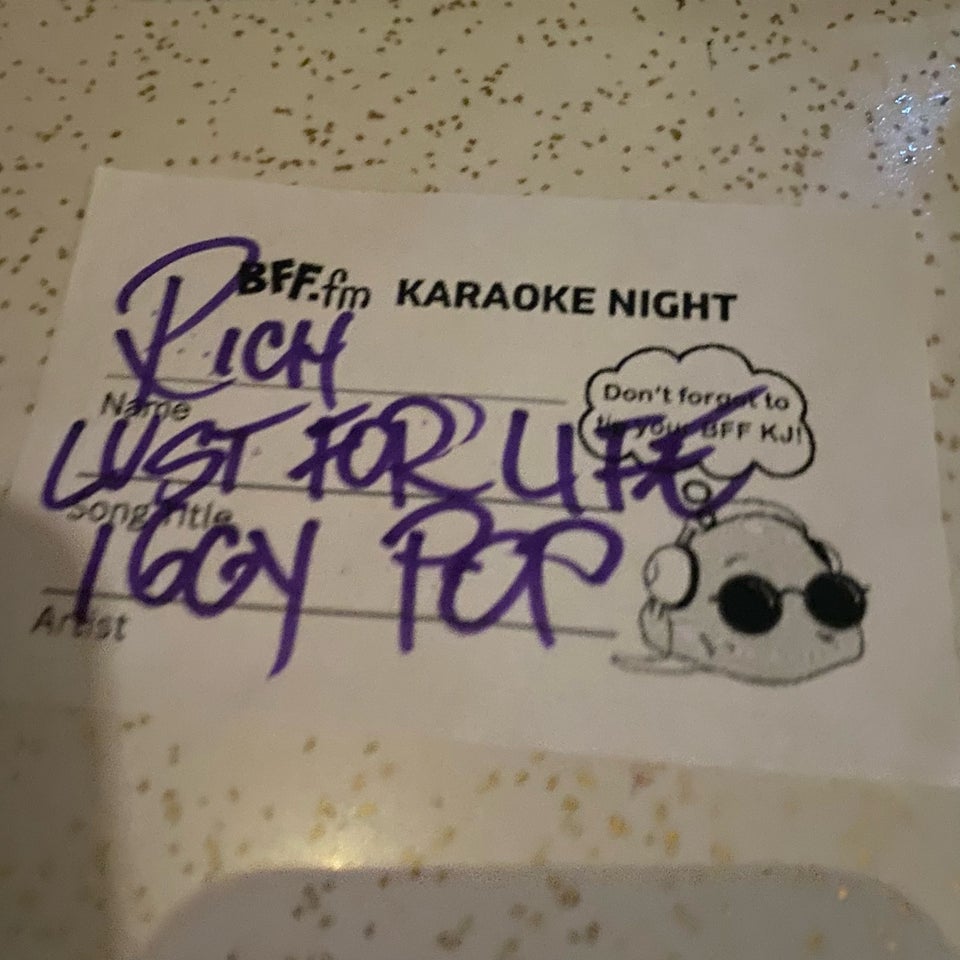 BFF.fm KARAOKE NIGHT
RICH
Name
LUST FOR LIFE
Song Title
IGGY POP
Artist
Don't forget to
tip your BFF KJ!